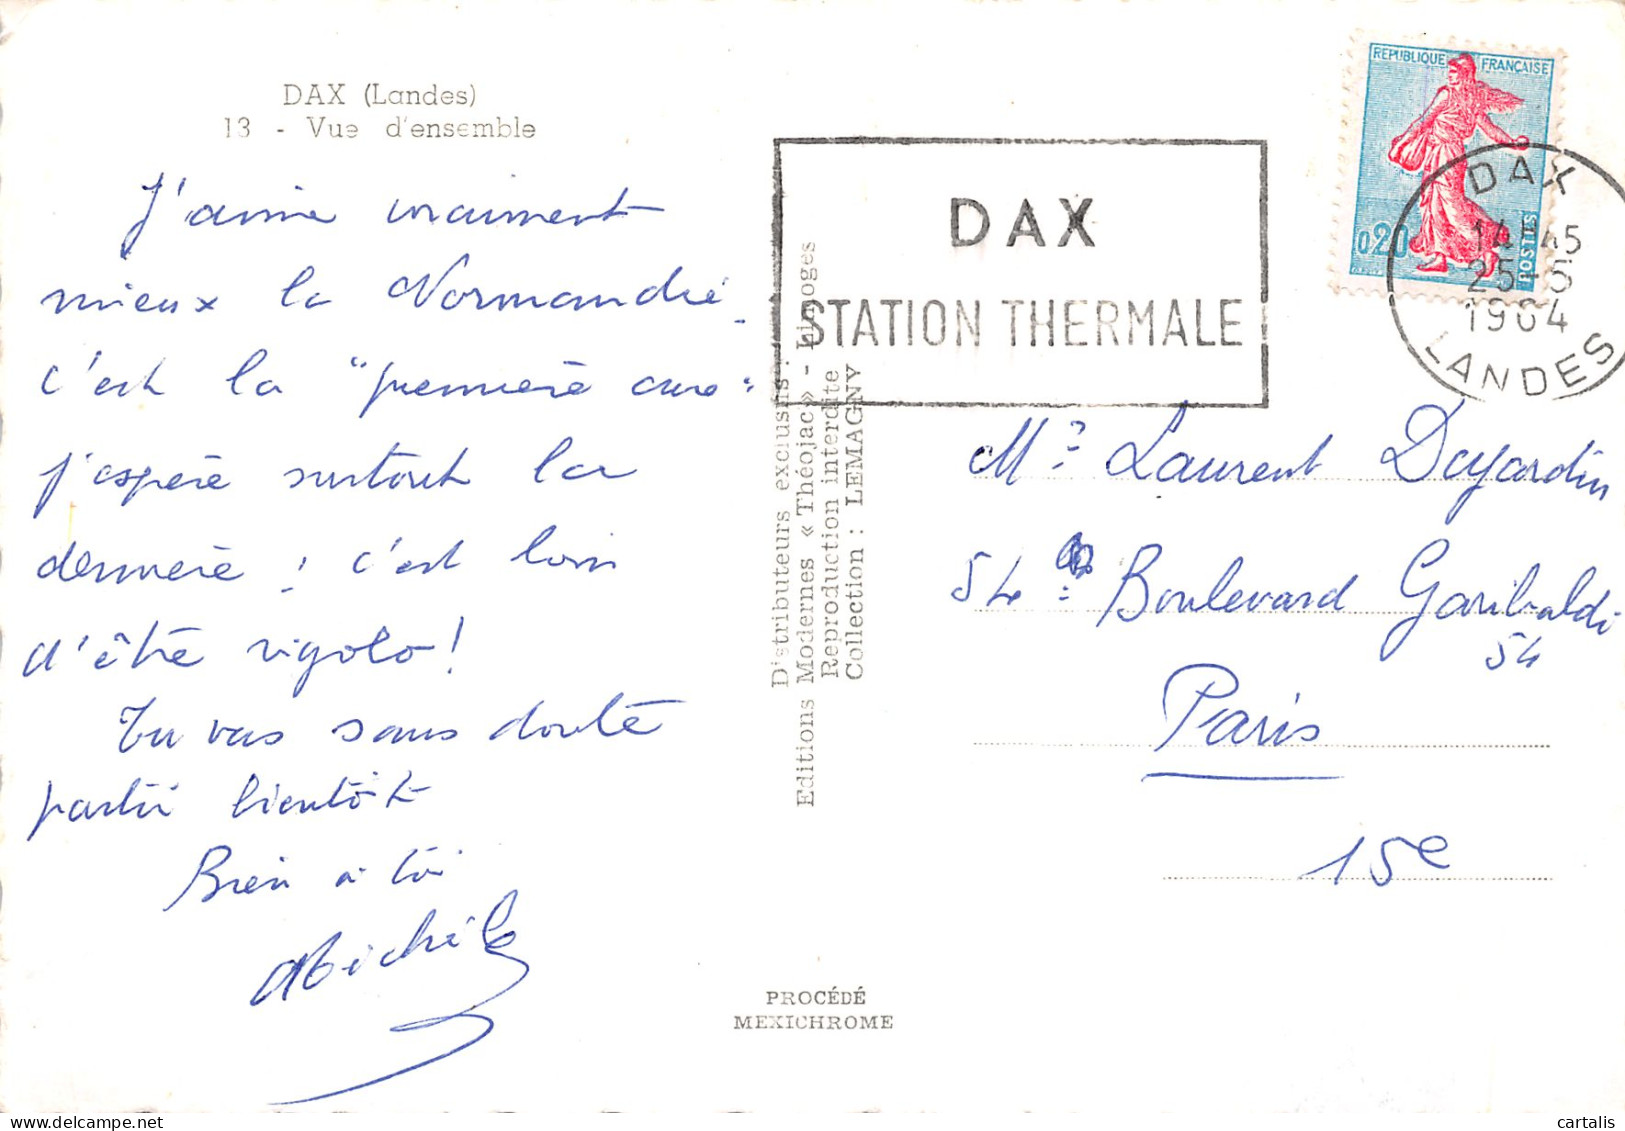 DAX (Landes)
13 - Vue d'ensemble
J'aime vraiment
mieux la Normandie.
c'est la "première cure"
j'espère surtout la
dernière ! c'est loin
d'être rigolo !
Tu vas sans doute
partir bientôt
Bien à toi
Michèle
Distributeurs exclusifs :
Editions Modernes « Théojac » - Limoges
Reproduction interdite
Collection : LEMAGNY
PROCÉDÉ
MEXICHROME
DAX
STATION THERMALE
REPUBLIQUE FRANÇAISE
0,20
POSTES
DAX
14H45
25-5
1964
LANDES
Mr Laurent Dujardin
54 Boulevard Garibaldi
54
Paris
15e
cartalis